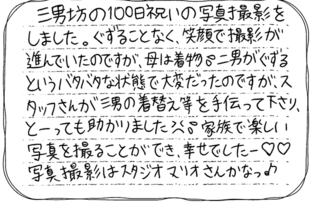 三男坊の100日祝いの写真撮影を
しました。ぐずることなく、笑顔で撮影が
進んでいたのですが、母は着物♂二男がぐずる
というバタバタな状態で大変だったのですが、ス
タッフさんが三男の着替え等を手伝って下さり、
とーっても助かりました♂家族で楽しい
写真を撮ることができ、幸せでしたー♡♡
写真撮影はスタジオマリオさんかなっ♪